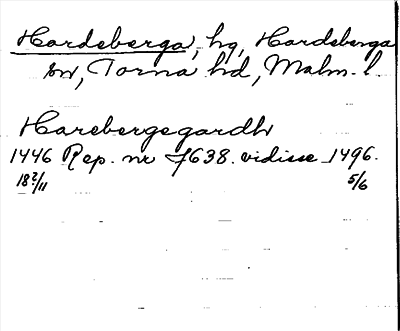 Hardeberga, hg, Hardeberga
sn, Torna hd, Malm. l.
Harebergegardh
1446 Rep. nr 7638. vidisse 1496.
18?/11 5/6